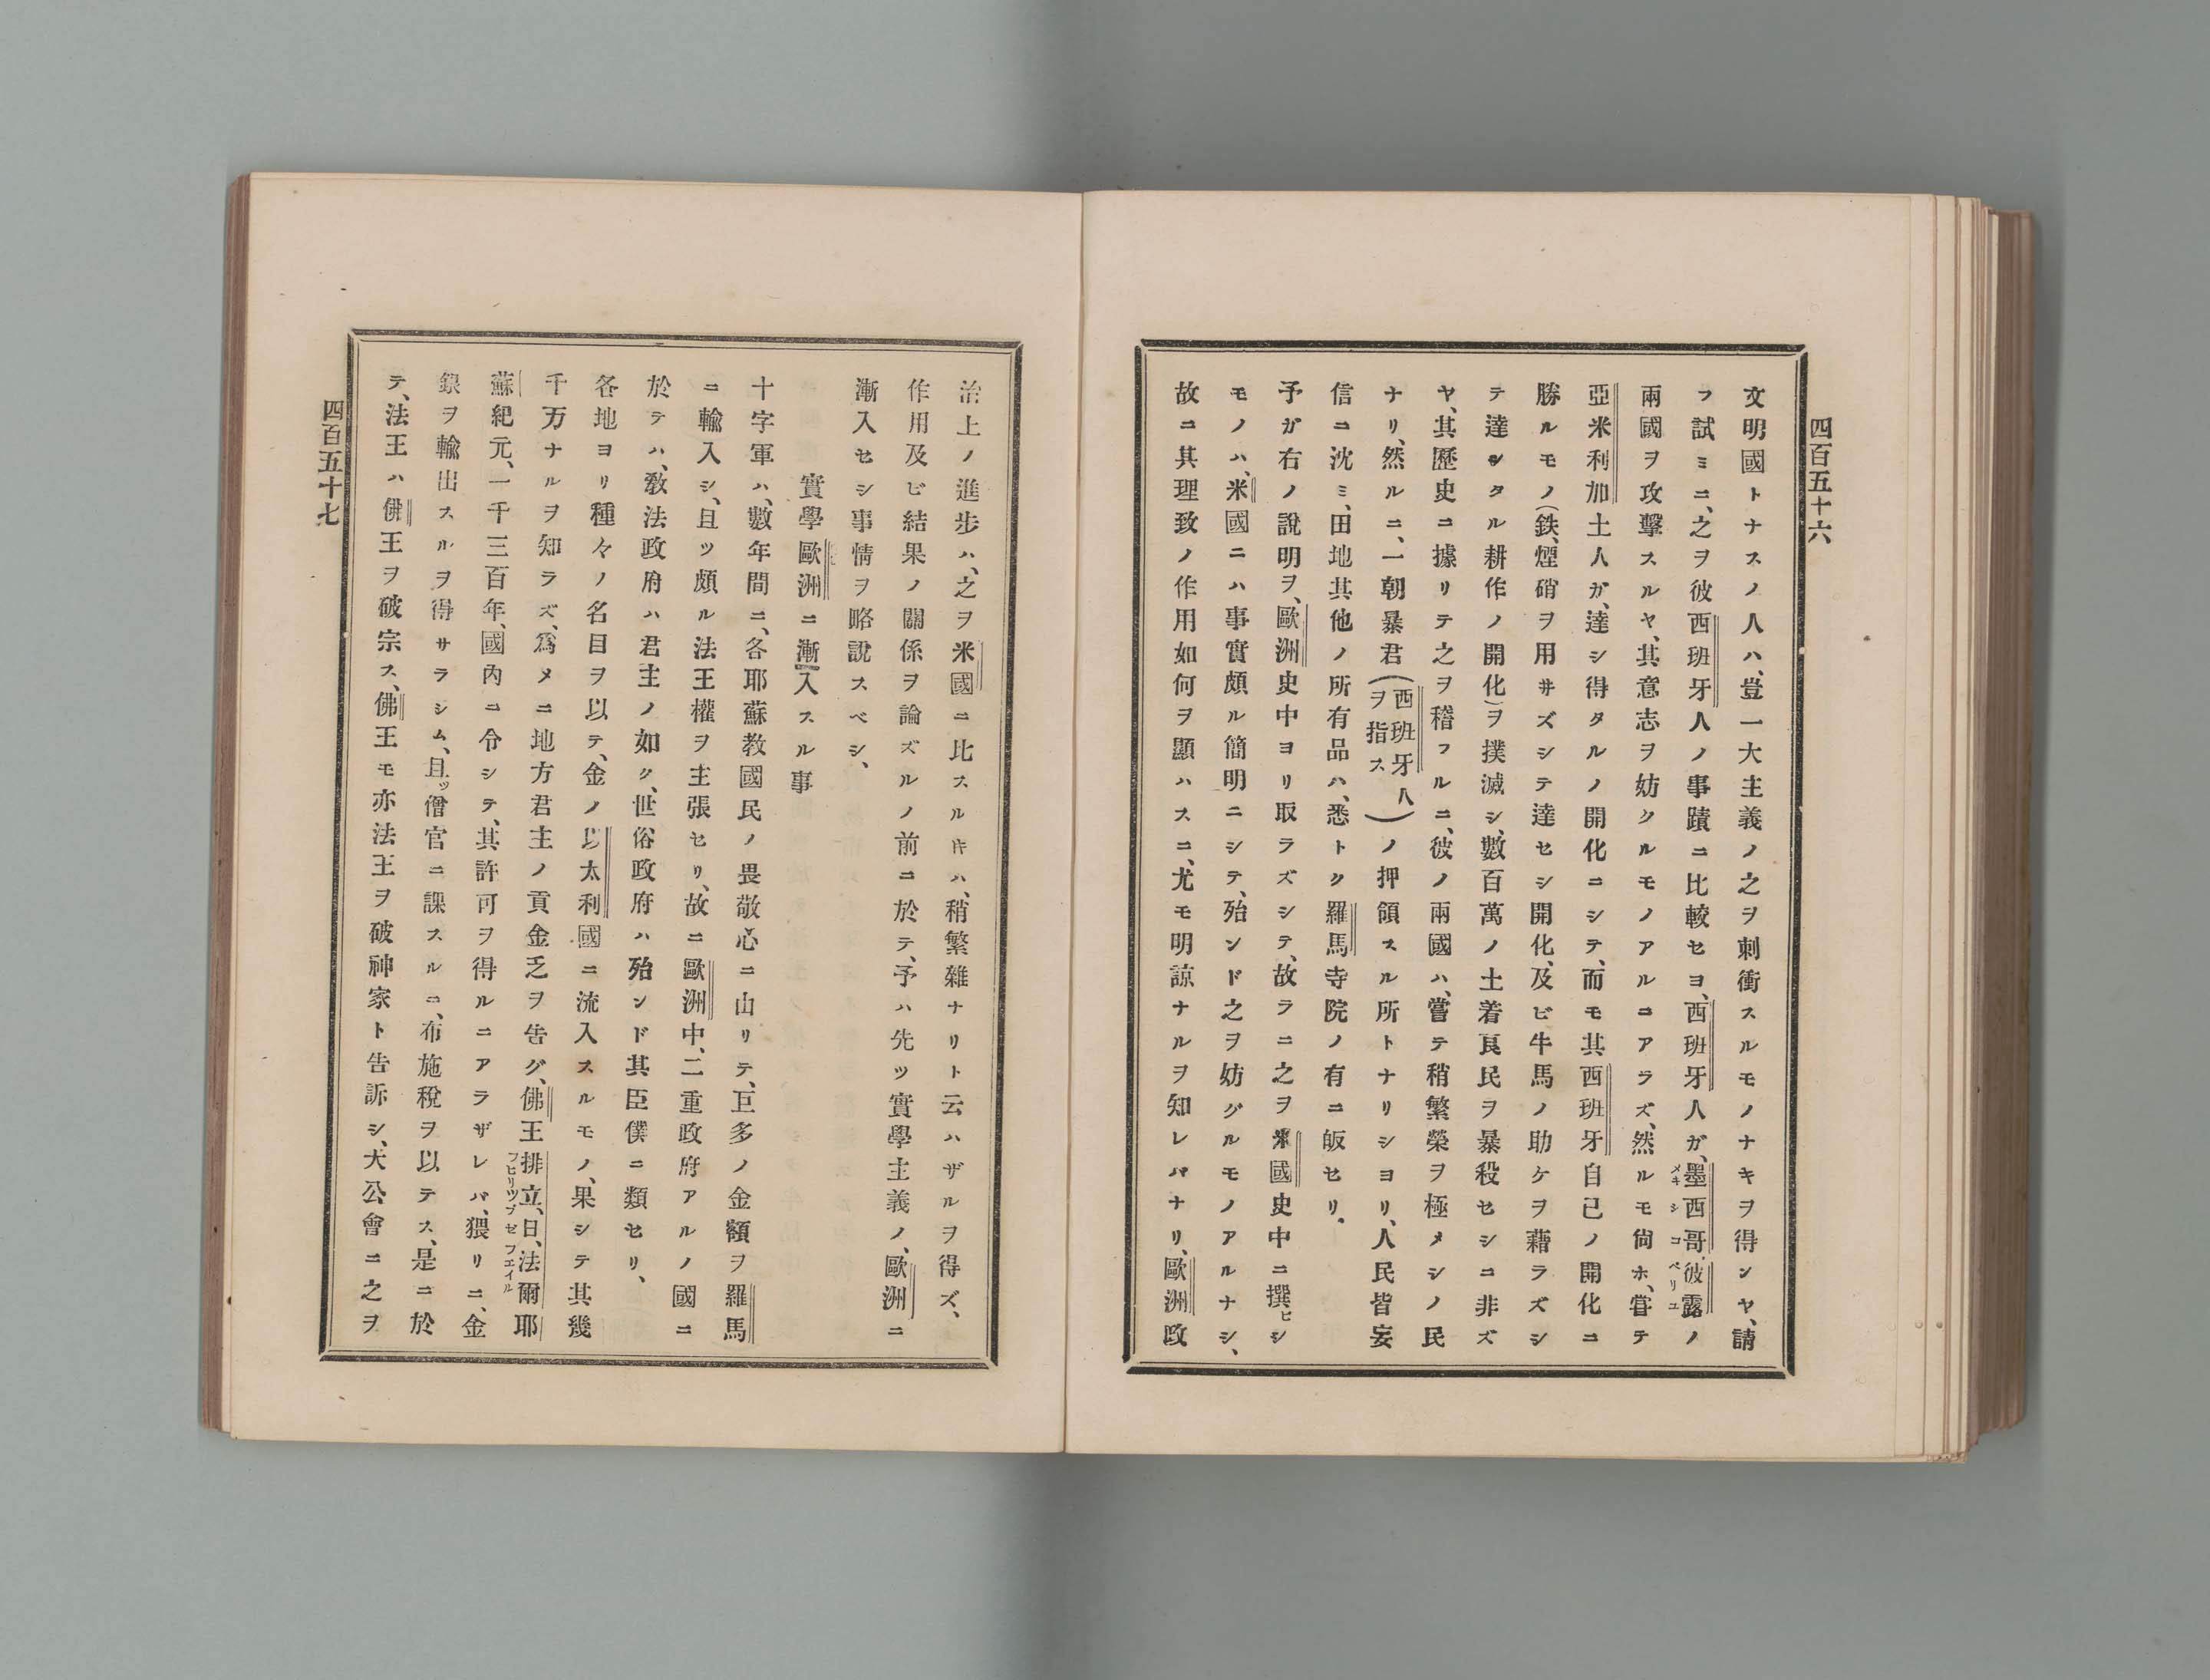 四百五十六
文明國トナスノ人ハ、豈一大主義ノ之ヲ刺衝スルモノナキヲ得ンヤ、請
フ試ミニ、之ヲ彼西班牙人ノ事蹟ニ比較セヨ、西班牙人ガ、墨西哥、彼露ノ
メキシコ ペリユ
兩國ヲ攻擊スルヤ、其意志ヲ妨クルモノアルコアラズ、然ルモ尙ホ、甞テ
亞米利加土人ガ、達シ得タルノ開化ニシテ、而モ其西班牙自己ノ開化ニ
勝ルモノ(鉄、煙硝ヲ用井ズシテ達セシ開化、及ビ牛馬ノ助ケヲ藉ラズシ
テ達シタル耕作ノ開化)ヲ撲滅シ、數百萬ノ土着良民ヲ暴殺セシコ非ズ
ヤ、其歷史ニ據リテ之ヲ稽フルニ、彼ノ兩國ハ、嘗テ稍繁榮ヲ極メシノ民
ナリ、然ルニ、一朝暴君(西班牙人ヲ指ス)ノ押領スル所トナリシヨリ、人民皆妄
信ニ沈ミ、田地其他ノ所有品ハ、悉トク羅馬寺院ノ有ニ皈セリ、
予ガ右ノ說明ヲ、歐洲史中ヨリ取ラズシテ、故ラニ之ヲ米國史中ニ撰ヒシ
モノハ、米國ニハ事實頗ル簡明ニシテ、殆ンド之ヲ妨グルモノアルナシ、
故ニ其理致ノ作用如何ヲ顯ハスニ、尤モ明諒ナルヲ知レバナリ、歐洲政
治上ノ進步ハ、之ヲ米國ニ比スル𪜈ハ、稍繁雜ナリト云ハザルヲ得ズ、
作用及ビ結果ノ關係ヲ論ズルノ前ニ於テ、予ハ先ツ實學主義ノ、歐洲ニ
漸入セシ事情ヲ略說スベシ、
實學歐洲ニ漸入スル事
十字軍ハ、數年間ニ、各耶蘇教國民ノ畏敬心ニ由リテ、巨多ノ金額ヲ羅馬
ニ輸入シ、且ツ頗ル法王權ヲ主張セリ、故ニ歐洲中、二重政府アルノ國ニ
於テハ、敎法政府ハ君主ノ如ク、世俗政府ハ殆ンド其臣僕ニ類セリ、
各地ヨリ種々ノ名目ヲ以テ、金ノ以太利國ニ流入スルモノ、果シテ其幾
千万ナルヲ知ラズ、爲メニ地方君主ノ貢金乏ヲ告グ、佛王排立、日、法爾耶
フヒリツプゼフエイル
蘇紀元、一千三百年、國內ニ令シテ、其許可ヲ得ルニアラザレバ、猥リニ、金
銀ヲ輸出スルヲ得サラシム、且ツ僧官ニ課スルニ、布施稅ヲ以テス、是ニ於
テ、法王ハ佛王ヲ破宗ス、佛王モ亦法王ヲ破神家ト告訴シ、大公會ニ之ヲ
四百五十七